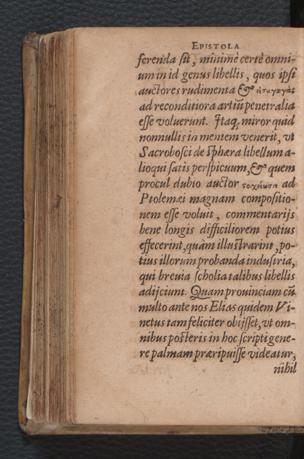 EPISTOLA
ferenda sit, minimè certè omni-
um in id genus libellis, quos ipsi
auctores rudimenta & ἀναγωγὰς
ad reconditiora artiũ penetralia
esse voluerunt. Itaq, miror quid
nonnullis in mentem venerit, vt
Sacrobosci de Sphæra libellum a-
lioqui satis perspicuum, & quem
procul dubio auctor ad
Ptolemæi magnam compositio-
nem esse voluit, commentarijs
bene longis difficiliorem potius
effecerint, quàm illustrarint, po-
tius illorum probanda industria,
qui breuia scholia talibus libellis
adijciunt. Quam prouinciam cũ
multo ante nos Elias quidem Vi-
netus tam feliciter obijsset, vt om-
nibus posteris in hoc scripti gene-
re palmam præripuisse videatur,
nihil